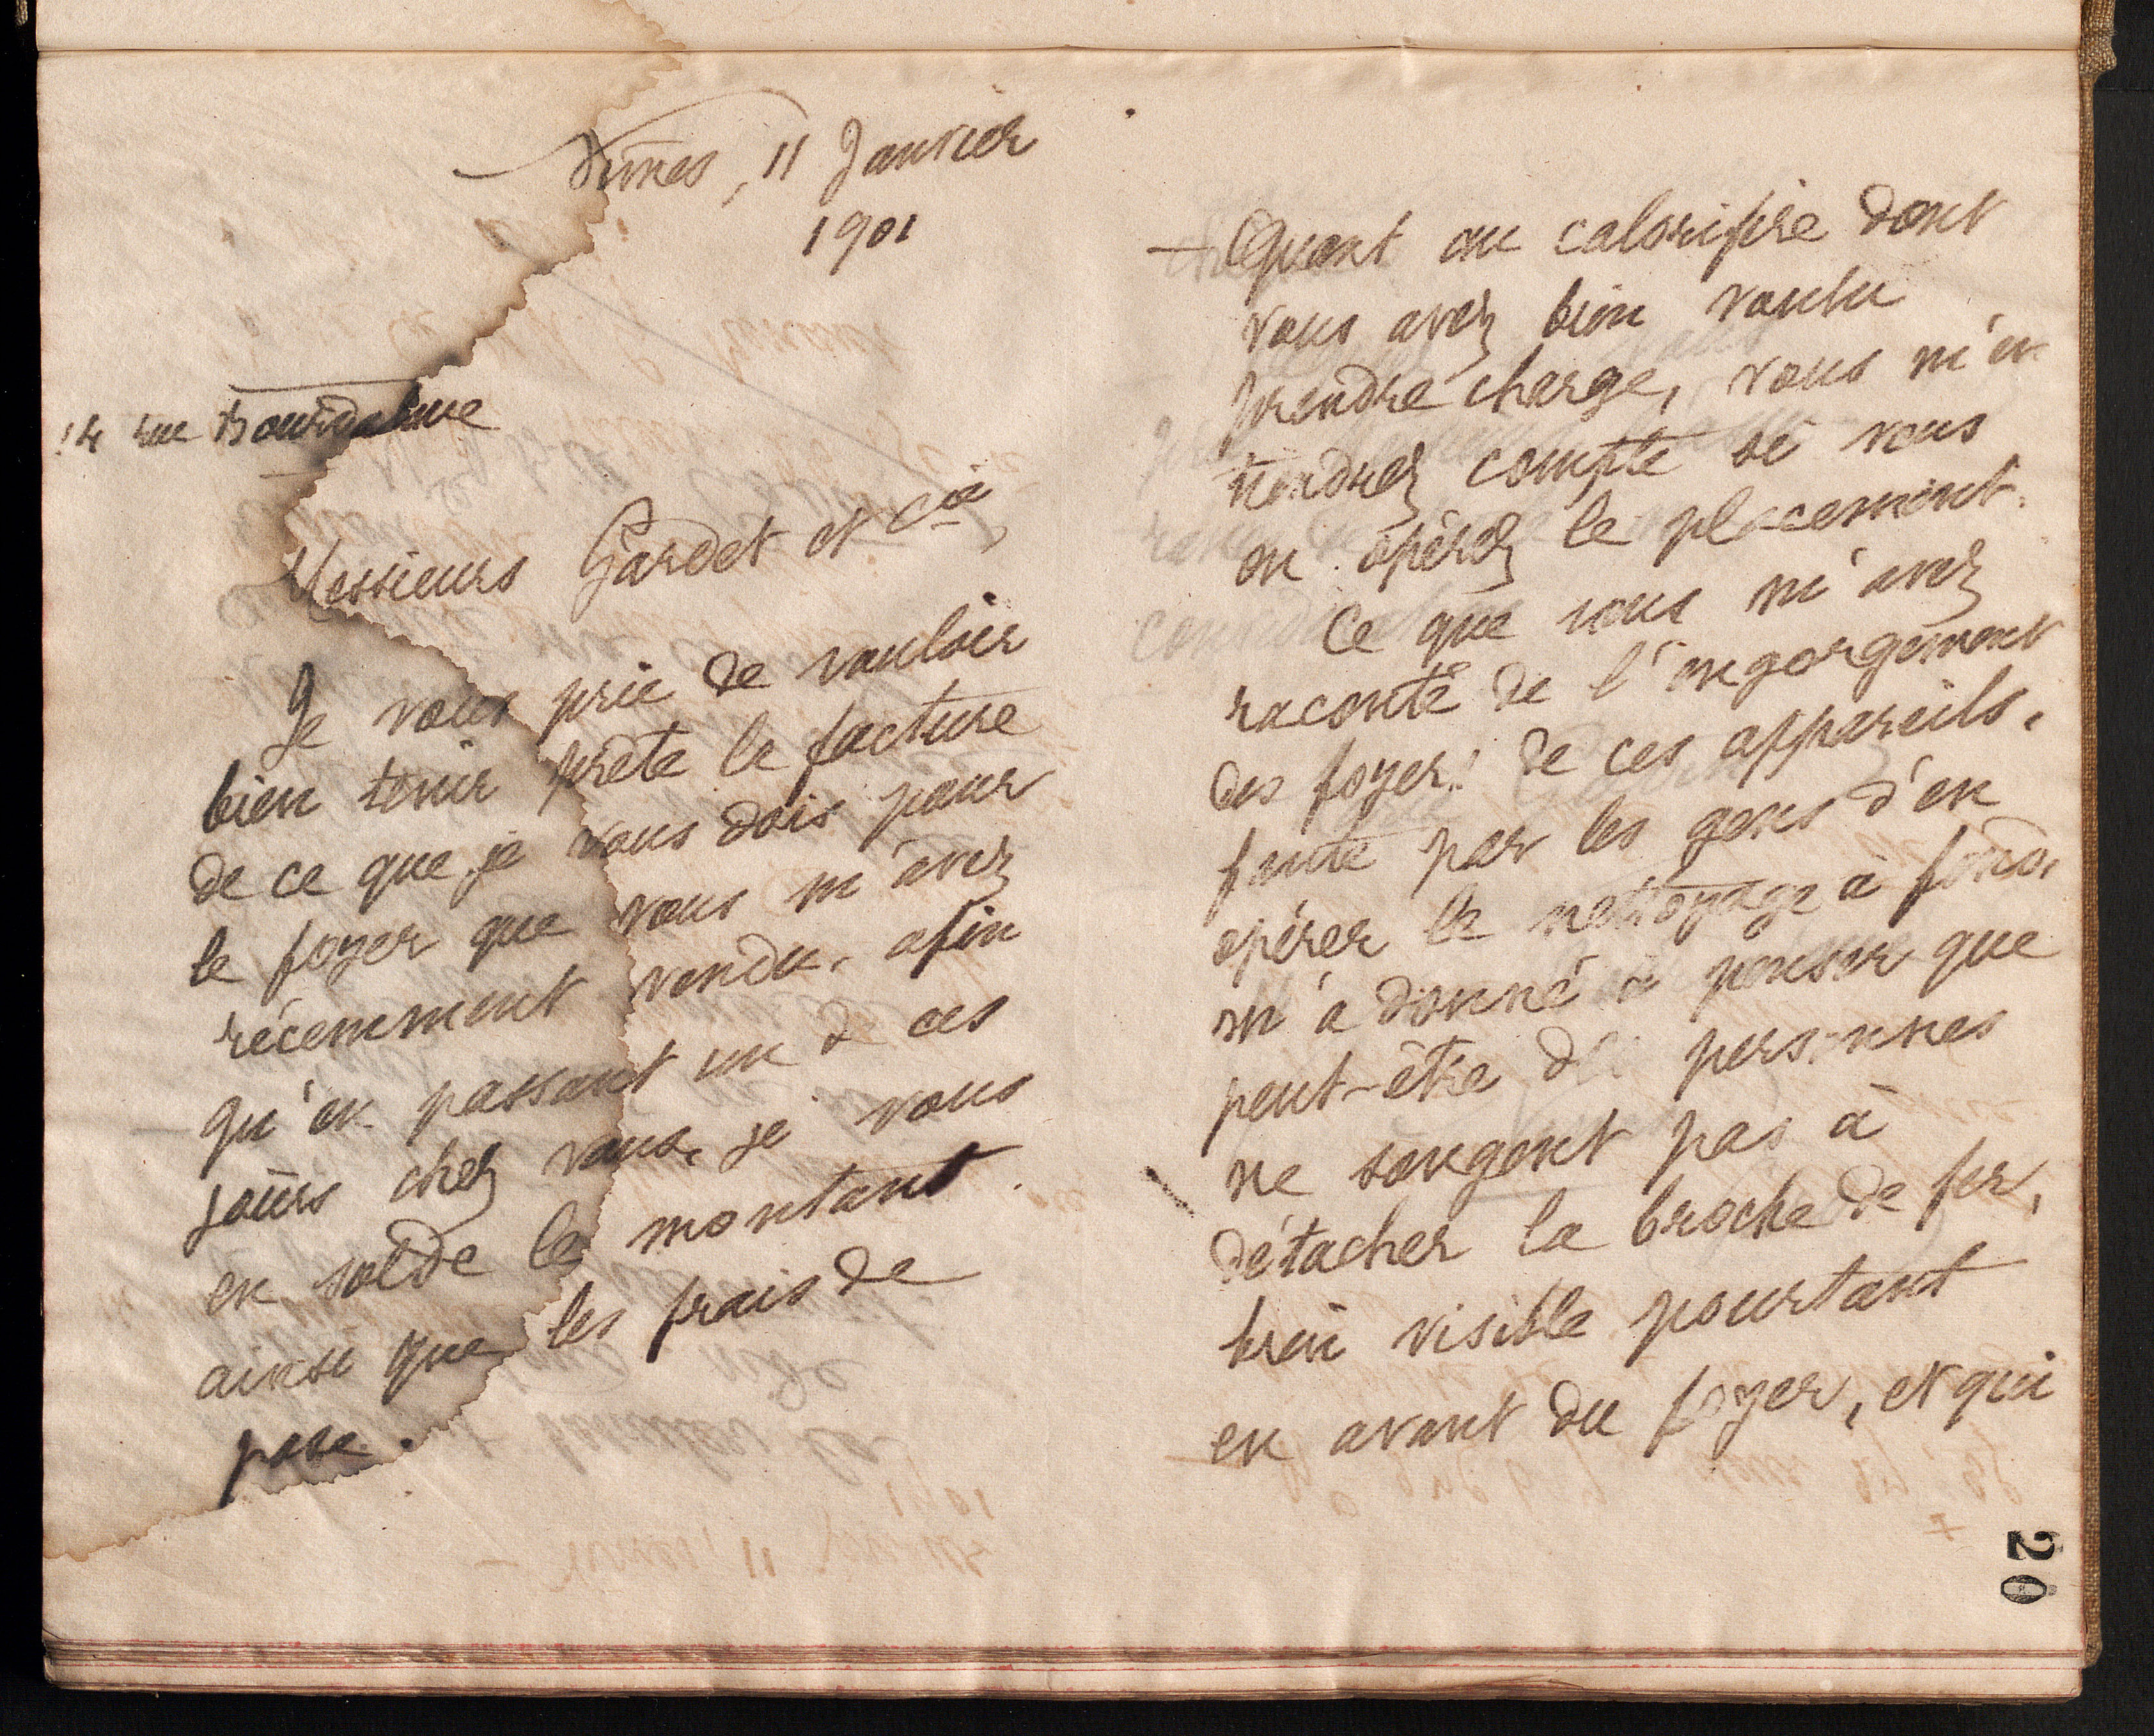 Nimes, 11 Janvier
1901
14 rue Bourdaloue
Messieurs Gardet et Cie,
Je vous prie de vouloir
bien tenir prête la facture
de ce que je vous dois pour
le foyer que vous m'avez
récemment vendu, afin
qu'en passant un de ces
jours chez vous, je vous
en solde le montant
ainsi que les frais de
pose.
Quant au calorifère dont
vous avez bien voulu
prendre charge, vous m'en
tiendrez compte si vous
en opérez le placement.
Ce que vous m'avez
raconté de l'engorgement
des foyers de ces appareils,
faute par les gens d'en
opérer le nettoyage à fond,
m'a donné à penser que
peut-être des personnes
ne songent pas à
détacher la broche de fer,
bien visible pourtant
en avant du foyer, et qui
20